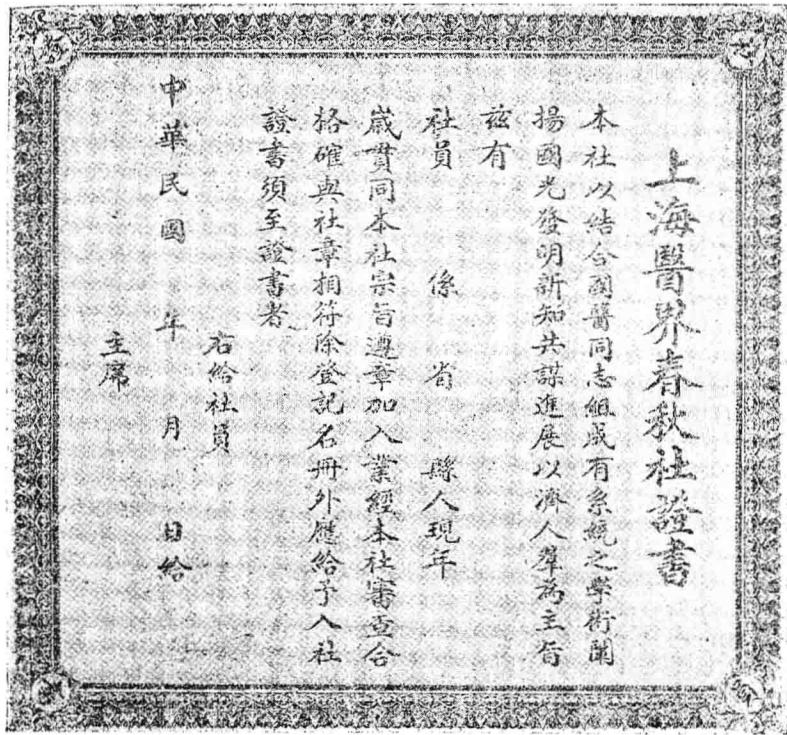 上海醫界春秋社證書
本社以結合國醫同志組成有系統之學術闡
揚國光發明新知共謀進展以濟人羣為主旨
茲有
社員　係　省　縣人現年
歲贊同本社宗旨遵章加入業經本社審查合
格確與社章相符除登記名冊外應給予入社
證書須至證書者
右給社員
中華民國　年　月　日給
主席